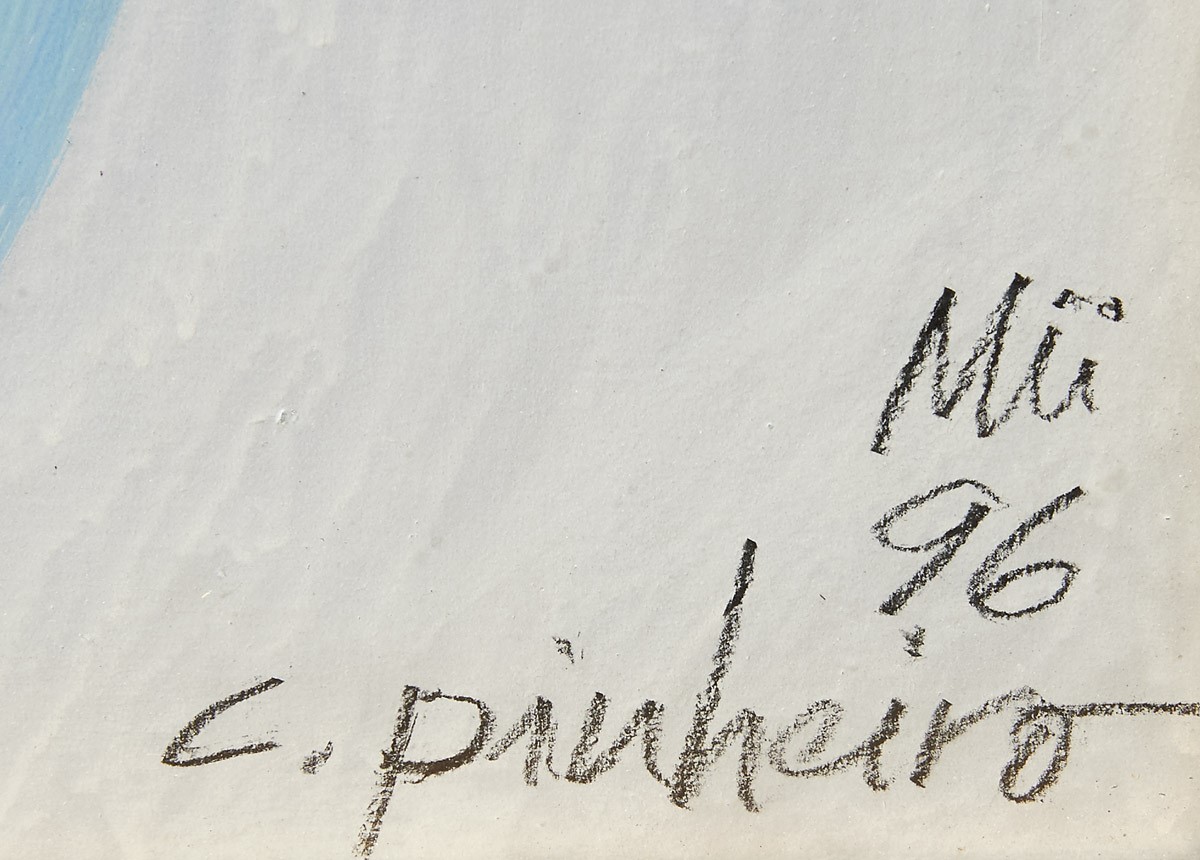 Mü
96
c. pinheiro